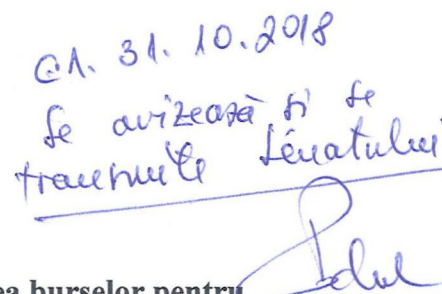 CA. 31. 10. 2018
Se avizează și se
transmite Senatului
ea burselor pentru